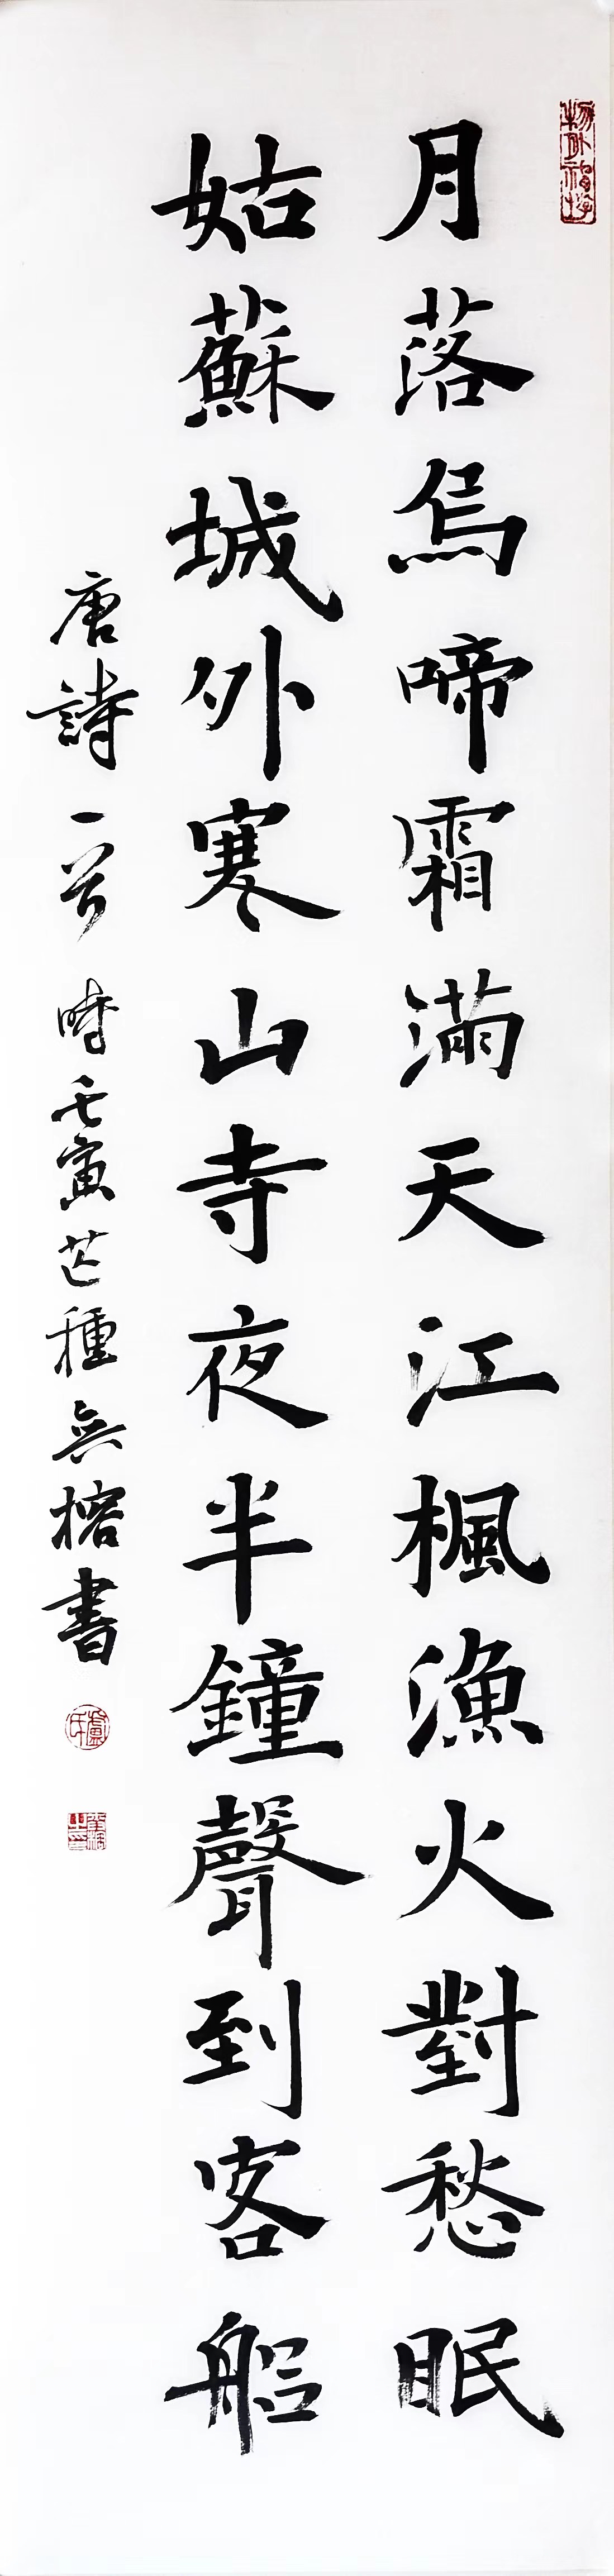 月落烏啼霜滿天江楓漁火對愁眠
姑蘇城外寒山寺夜半鐘聲到客船
唐詩一首時壬寅芒種兵榕書
盧氏